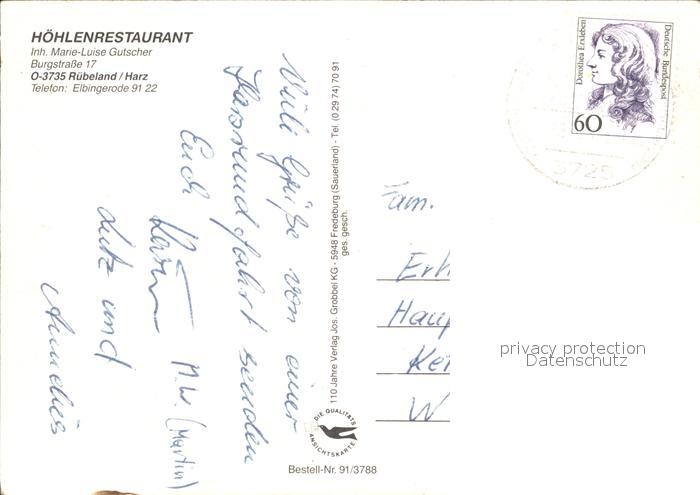 HÖHLENRESTAURANT
Inh. Marie-Luise Gutscher
Burgstraße 17
O-3735 Rübeland / Harz
Telefon: Elbingerode 91 22
Viele Grüße von einer
Harzrundfahrt senden
Euch
M.W. (Martin)
Lutz und
Annelies
110 Jahre Verlag Jos. Grobbel KG - 5948 Fredeburg (Sauerland) - Tel. (0 29 74) 70 91
ges. gesch.
DIE QUALITÄTS
ANSICHTSKARTE
Bestell-Nr. 91/3788
Dorothea Erxleben
Deutsche Bundespost
60
3725
Fam.
Erh
Haup
Ket
W
privacy protection
Datenschutz